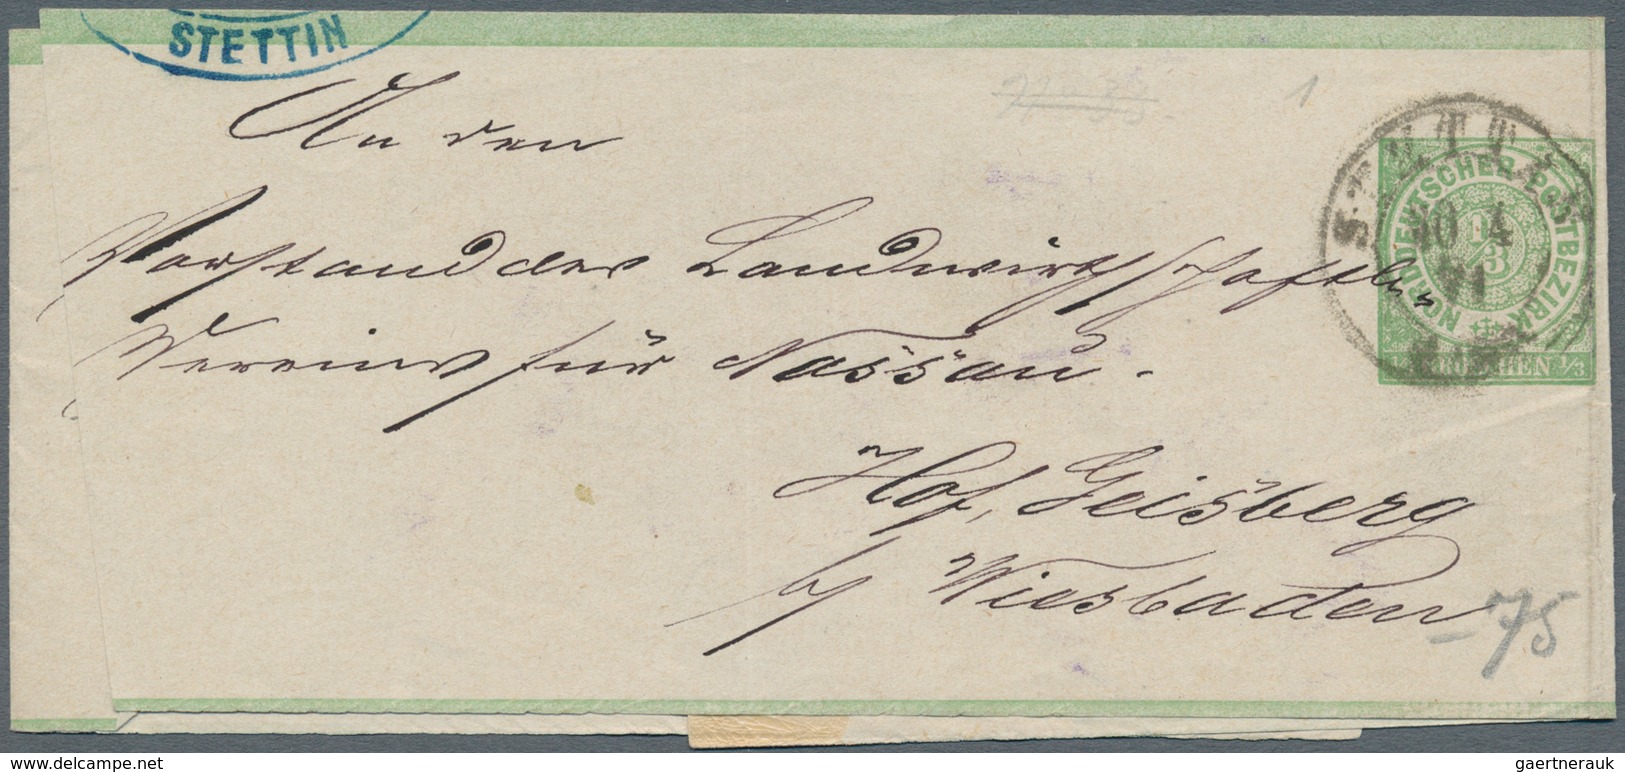 STETTIN
An den
1
Vorstand des Landwirthschaftl.
Vereins für Nassau.
STETTIN
10 4
71
NORDDEUTSCHER POSTBEZIRK
1/3
1/3 GROSCHEN 1/3
Hof Geisberg
b/ Wiesbaden
-75
www.delcampe.net
gaertnerauk